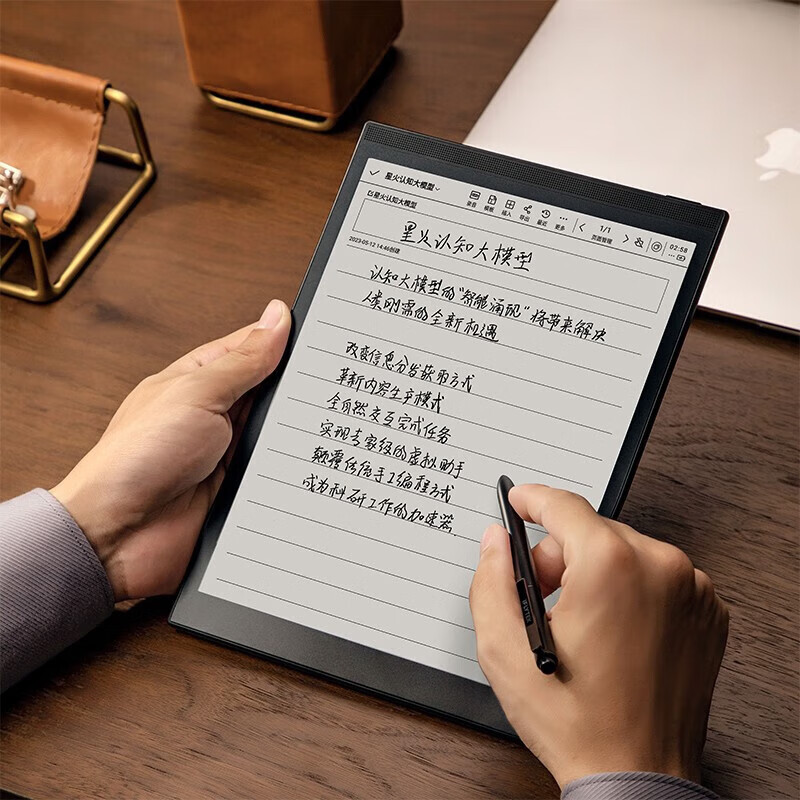 星火认知大模型
录音 模板 插入 导出 最近 更多 1/1 页面管理 02:58
星火认知大模型
星火认知大模型
2023-05-12 14:46创建
认知大模型的"智能涌现"将带来解决
人类刚需的全新机遇
改变信息分发获取方式
革新内容生产模式
全自然交互完成任务
实现专家级的虚拟助手
颠覆传统手工编程方式
成为科研工作的加速器.
iFLYTEK